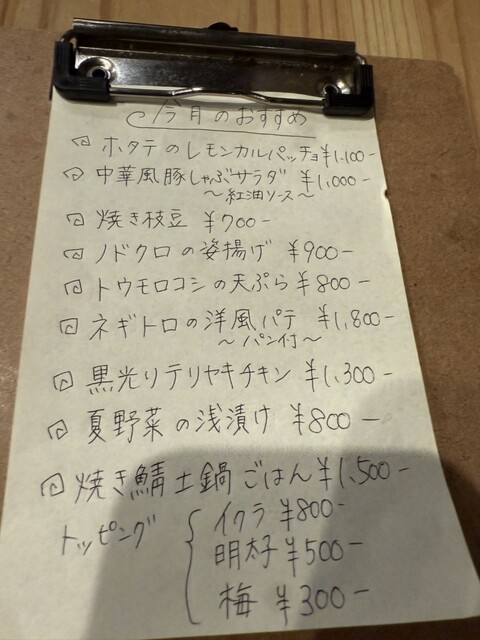 今月のおすすめ
ホタテのレモンカルパッチョ ¥1,100-
中華風豚しゃぶサラダ ¥1,000-
～紅油ソース～
焼き枝豆 ¥700-
ノドクロの姿揚げ ¥900-
トウモロコシの天ぷら ¥800-
ネギトロの洋風パテ ¥1,800-
～パン付～
黒光りテリヤキチキン ¥1,300-
夏野菜の浅漬け ¥800-
焼き鯖土鍋ごはん ¥1,500-
トッピング
イクラ ¥800-
明太子 ¥500-
梅 ¥300-